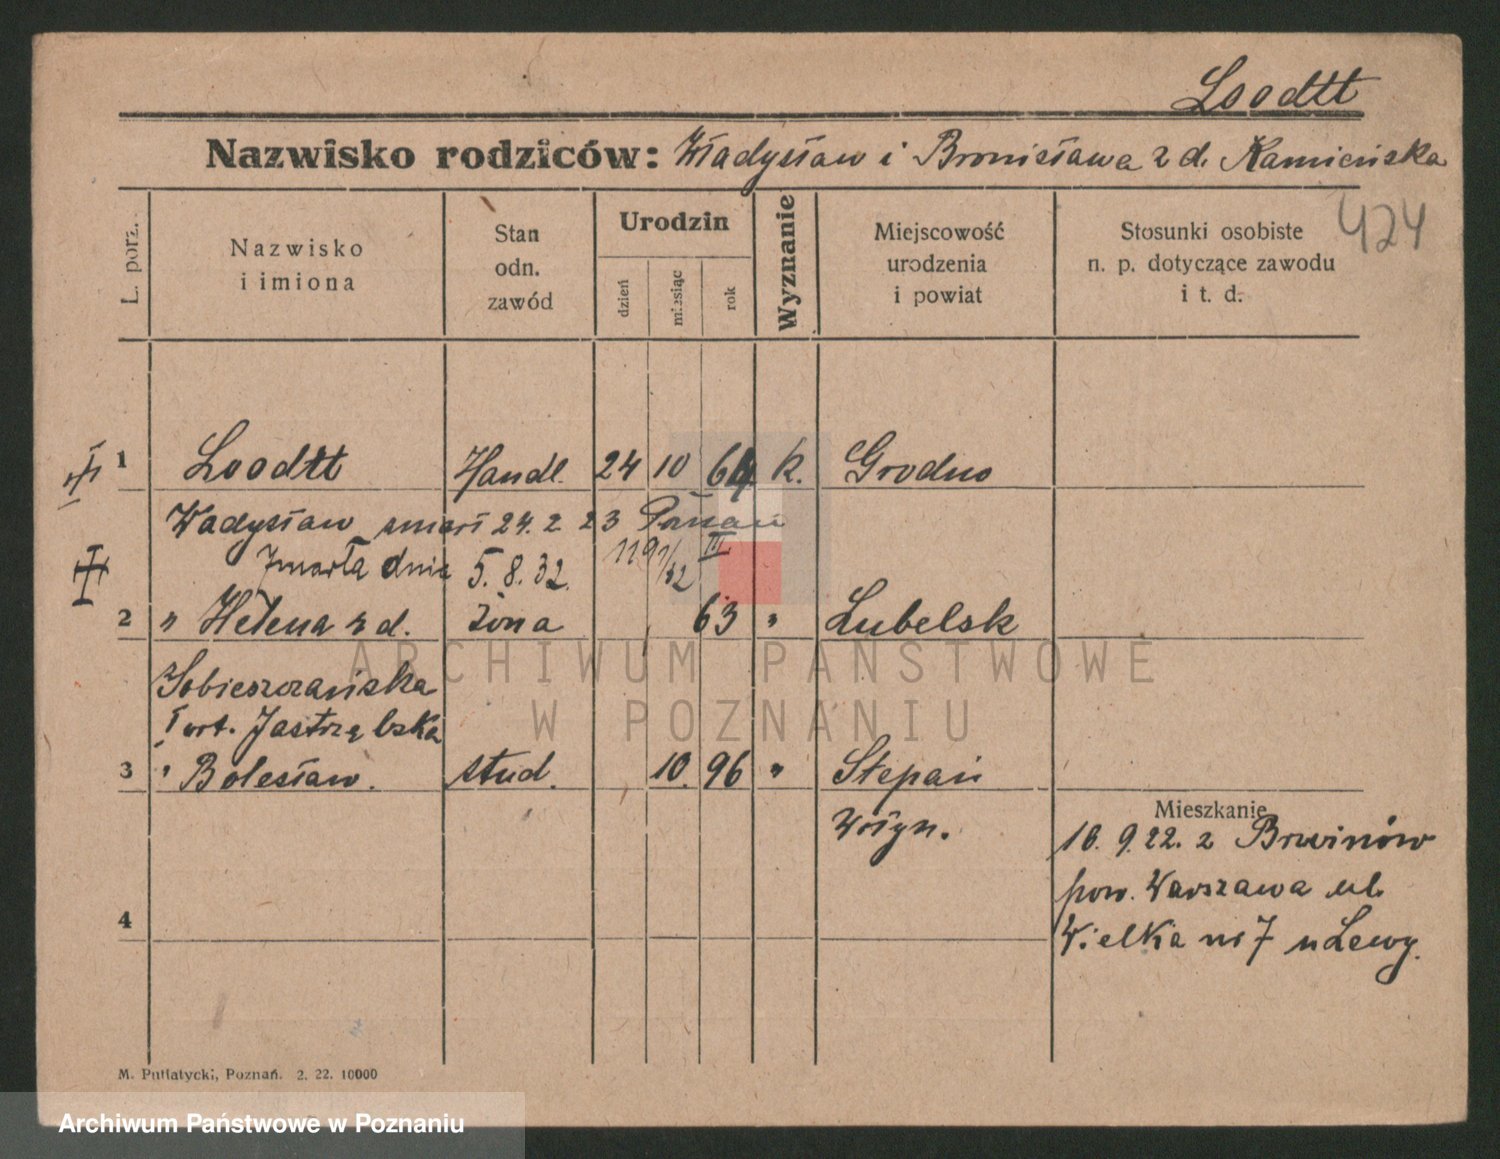 Loodtt
Nazwisko rodziców: Władysław i Bronisława z d. Kamieńska
424
L. porz.
Nazwisko
i imiona
Stan
odn.
zawód
Urodzin
dzień
miesiąc
rok
Wyznanie
Miejscowość
urodzenia
i powiat
Stosunki osobiste
n. p. dotyczące zawodu
i t. d.
1 Loodtt Handl. 24 10 64 k. Grodno
Władysław zmarł 24. 2 23 Poznań
Zmarła dnia 5. 8. 32 III
2 " Helena z d. żona 63 " Lubelsk
Sobieszczańska
Jastrzębska
3 " Bolesław. stud. 10. 96 " Stepań
Wołyn.
Mieszkanie
16. 9. 22. z Brwinów
pow. Warszawa ul.
4
Wielka nr 7 u Lewy.
M. Putiatycki, Poznań. 2. 22. 10000
ARCHIWUM PAŃSTWOWE
W POZNANIU
Archiwum Państwowe w Poznaniu